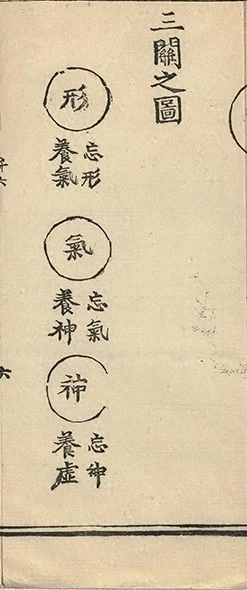 三關之圖
形
忘形
養氣
氣
忘氣
養神
神
忘神
養虛
六